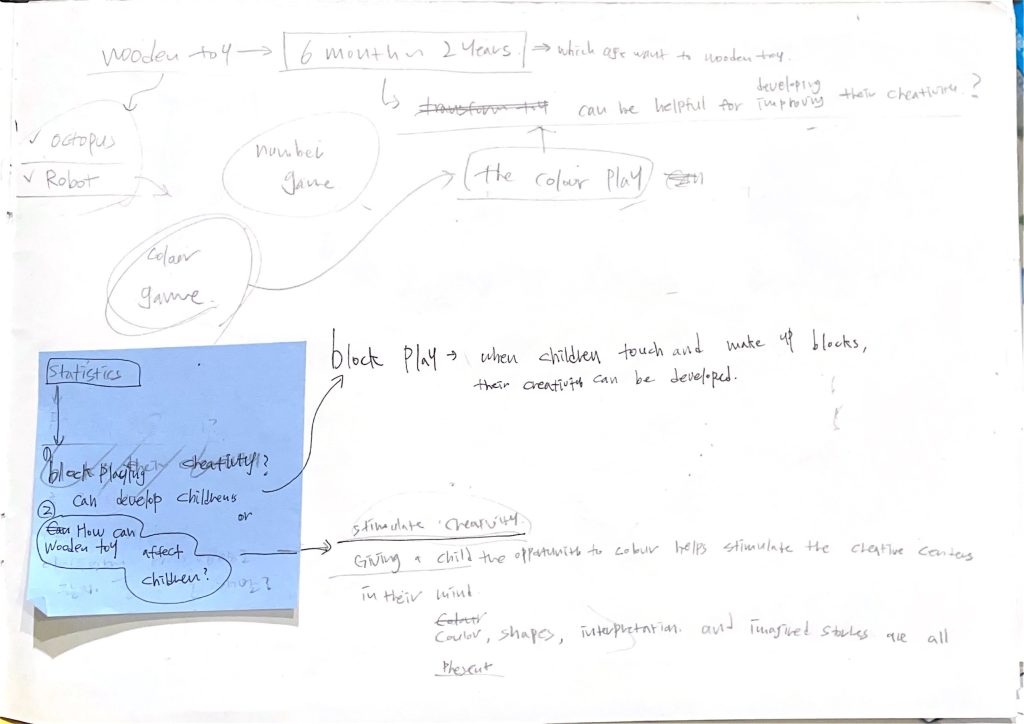 wooden toy → 6 month ~ 2 years. ⇒ which age want to wooden toy.
developing
transform toy can be helpful for improving their creativity.?
✓ octopus
✓ Robot
number
game
the colour play
colour
game.
block play → when children touch and make up blocks,
their creativity can be developed.
Statistics
①
block playing their creativity?
can develop childrens
or
②
Can How can
wooden toy affect
children?
stimulate creativity.
Giving a child the oppotunity to colour helps stimulate the creative centers
in their mind
Colour
Coulor, shapes, interpretation. and imagined stories are all
Present